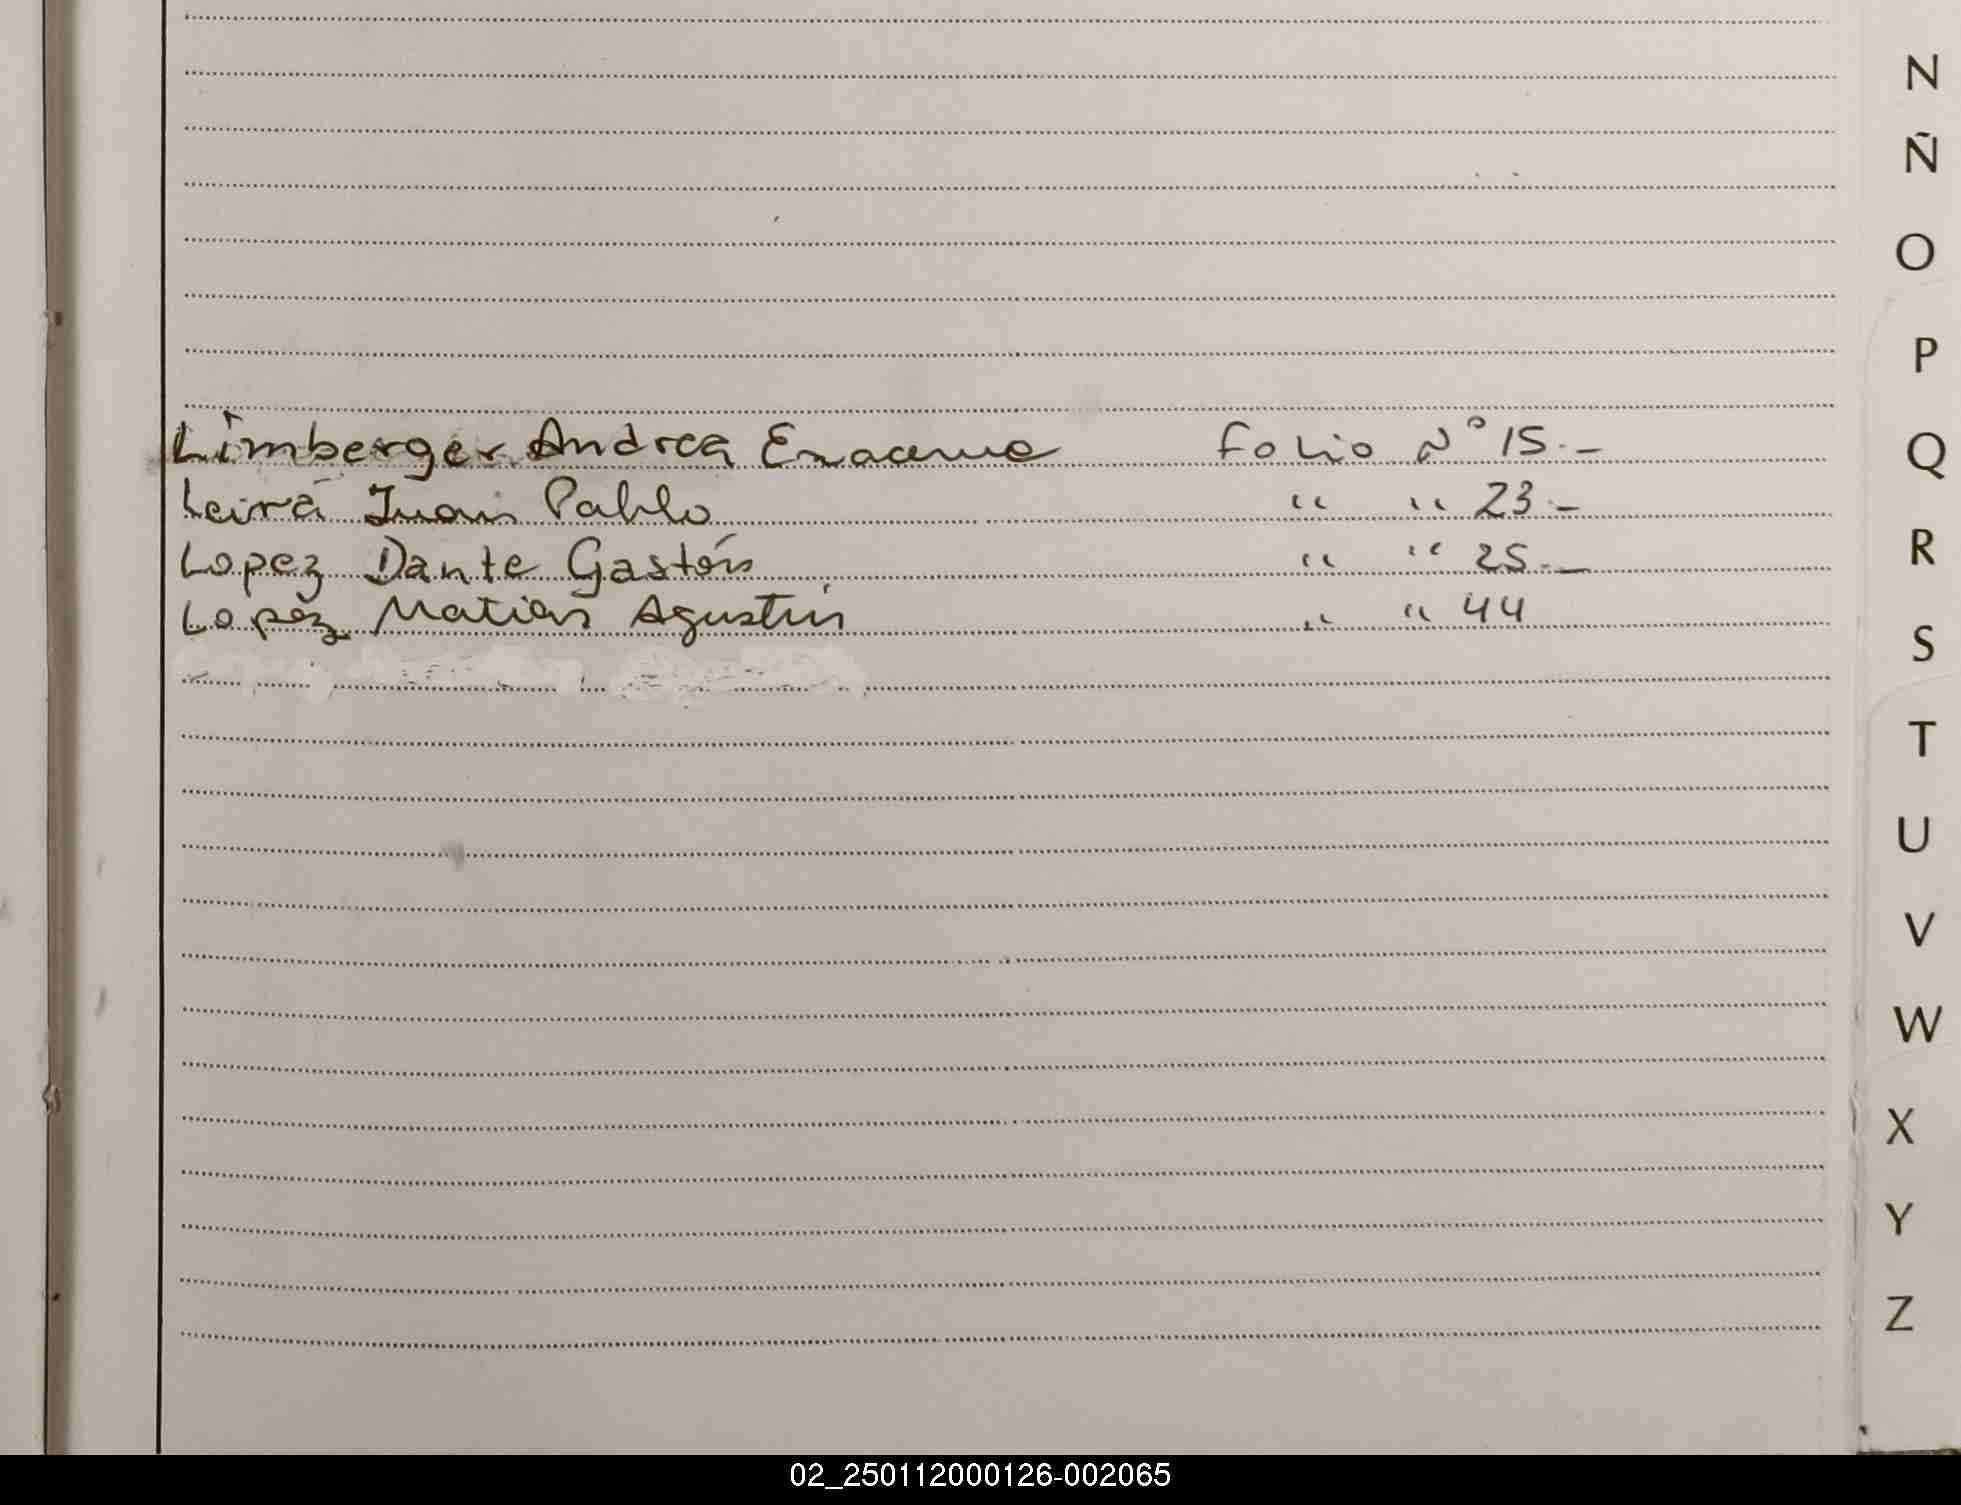 Limberger Andrea Folio N° 15.-
Leirá Juan Pablo " " 23.-
Lopez Dante Gastón " " 25.-
Lopez Matias Agustín " " 44
N
Ñ
O
P
Q
R
S
T
U
V
W
X
Y
Z
02_250112000126-002065